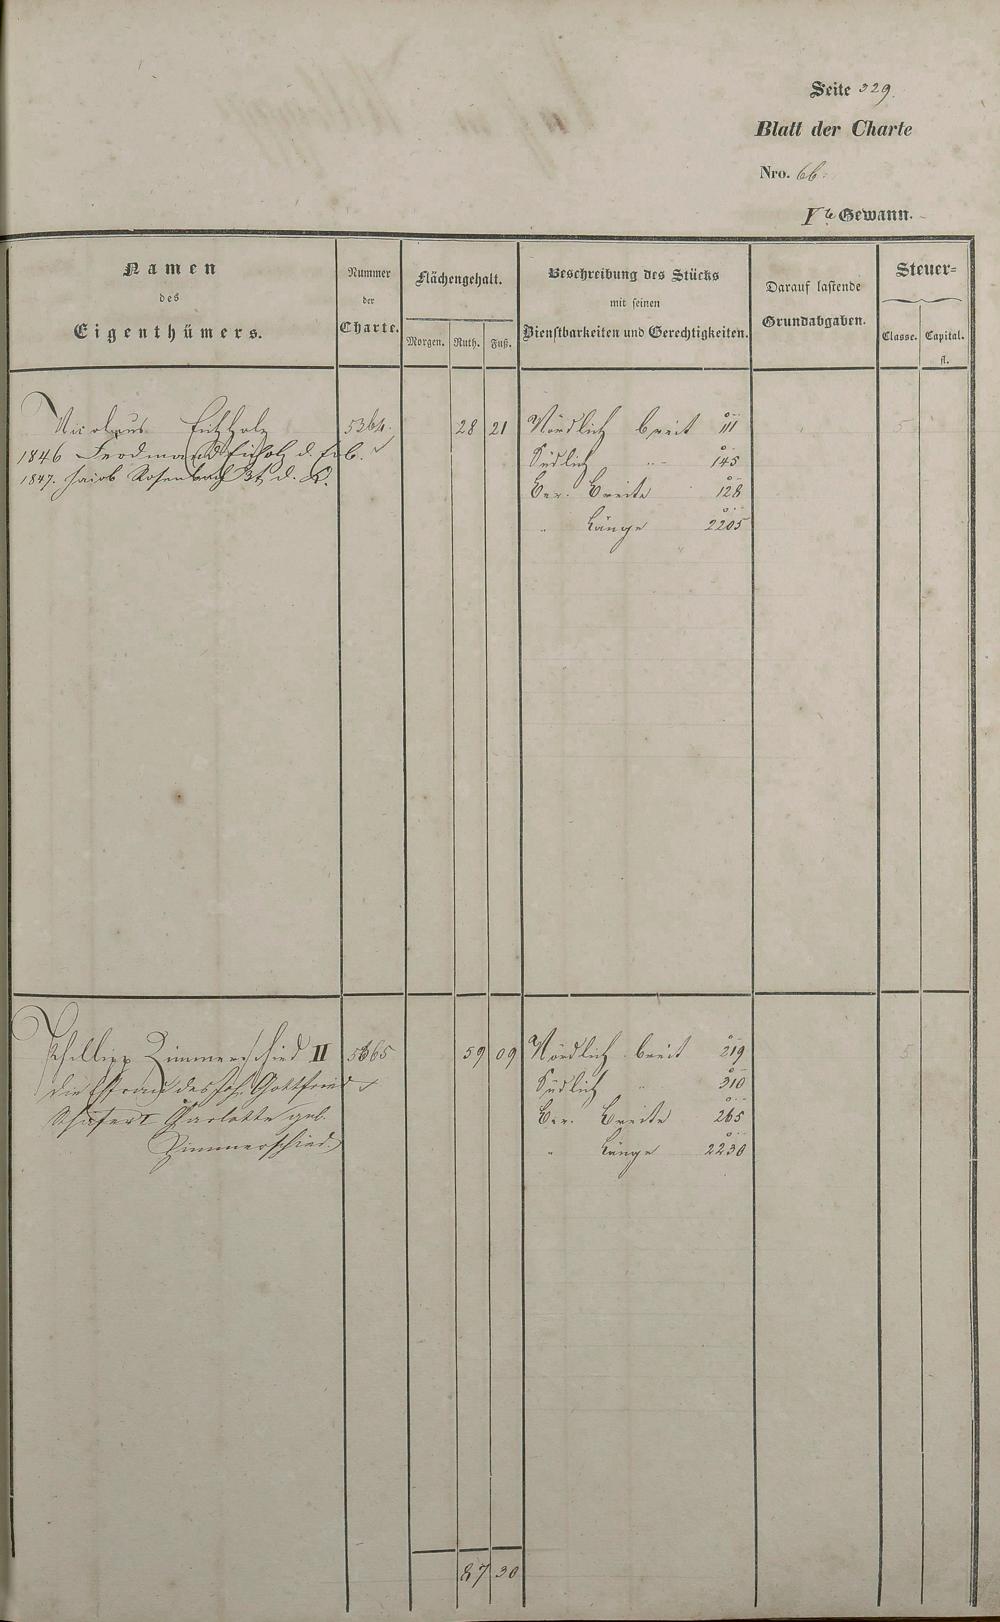 Seite 329.
Blatt der Charte
Nro. 66.
Vte Gewann.
Namen
des
Eigenthümers.
Nummer
der
Charte.
Flächengehalt.
Morgen. Ruth. Fuß.
Beschreibung des Stücks
mit seinen
Dienstbarkeiten und Gerechtigkeiten.
Darauf lastende
Grundabgaben.
Steuer=
Classe. Capital.
fl.
Nicolaus Eichholz 5364. 28 21 Nördlich breit 111 5
1846 Ferdinand Eicholz d. Erb. Südlich " 145
1847. Jacob Rosenbach d. K. Ber. Breite 128
" Länge 2205
Phillipp Zimmerschied II 5365 59 09 Nördlich breit 219 5
Die Ehefrau des Joh. Gottfried Südlich " 310
Schäfer I Charlotte geb. Ber. Breite 265
Zimmerschied. " Länge 2230
87 30